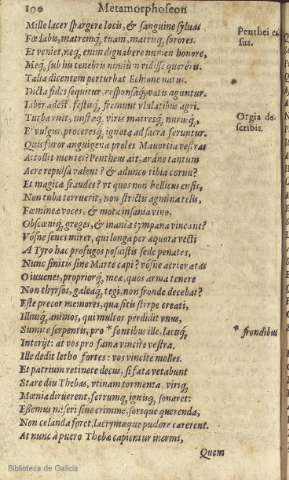 190 Metamorphoseon
Mille lacer spargere locis, & sanguine syluas
Fœdabis, matremq́; tuam, matrisq́; sorores.
Et veniet, neq; enim dignabere numen honore,
Meq; sub his tenebris nimium vidisse quereris.
Talia dicentem perturbat Echione natus.
Dicta fides sequitur, responsaq́; vatis aguntur.
Liber adest, festisq́; fremunt vlulatibus agri.
Turba ruit, mistæq́; viris matresq́; nurusq́;
Et vulgus, proceresq́; ignota ad sacra feruntur.
Quis furor anguigenæ proles Mauortia vestras
Attollit mentes? Pentheus ait: æra ne tantum
Aere repulsa valent? & adunco tibia cornu?
Et magicæ fraudes? vt quos non bellicus ensis,
Non tuba terruerit, non strictis agmina telis,
Fœmineæ voces, & mota insania vino,
Obscœniq́; greges, & inania tympana vincant?
Vosne senes mirer, qui longa per æquora vecti
A Tyro hac profugos posuistis sede penates,
Nunc sinitis sine Marte capi? vosne acrior ætas
O iuuenes, propriorq́; meæ, quos arma tenere
Non thyrsos, galeaq́; tegi, non fronde decebat?
Este precor memores, qua sitis stirpe creati,
Illiusq́; animos, qui multos perdidit vnus,
Sumite serpentis, pro * fontibus ille, lacuq́;
Interijt: at vos pro fama vincite vestra.
Ille dedit letho fortes: vos vincite molles.
Et patrium retinete decus, si fata vetabunt
Stare diu Thebas, vtinam tormenta, viriq́;
Mœnia diruerent, ferrumq́; ignisq́; sonaret:
Essemus miseri sine crimine, sorsque querenda,
Non celanda foret, lacrymæque pudore carerent.
At nunc à puero Thebæ capientur inermi,
Quem
Penthei
sus.
Orgia de-
scribit.
* frondibus
Biblioteca de Galicia